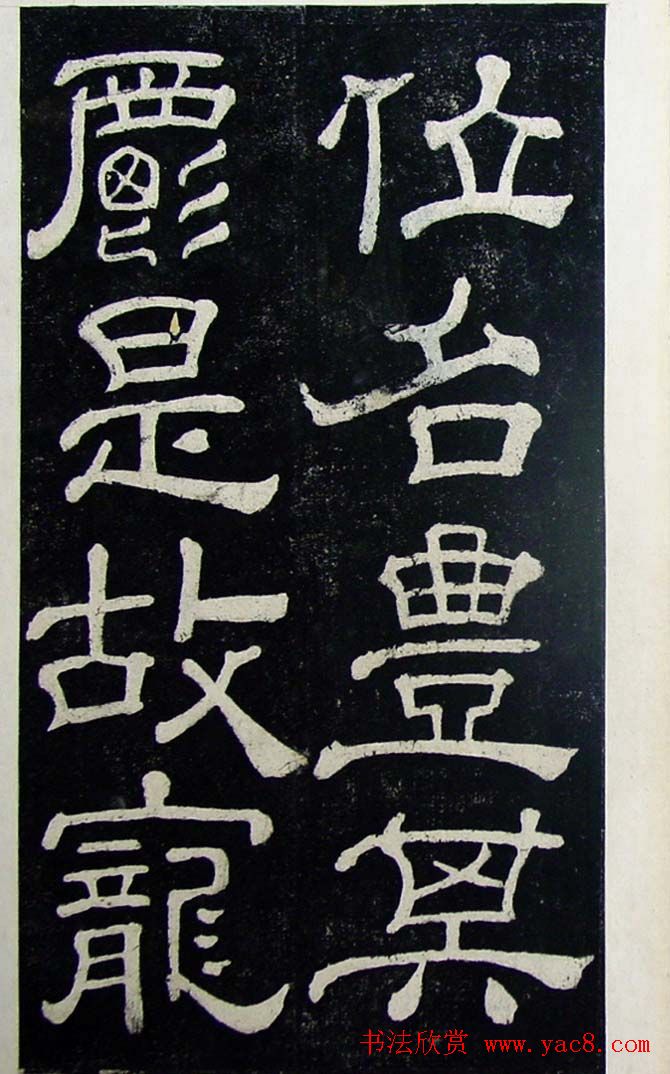 位名豊其
爵是故寵
书法欣赏 www.yac8.com